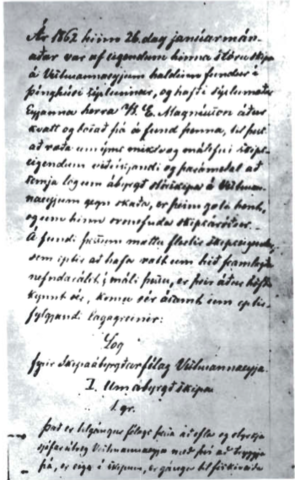 Ár 1862 hinn 26. dag januarmán-
aðar var af eigendum hinna stóru skipa
á Vestmannaeyjum haldinn fundur á
þinghúsi sýslunnar, og hafði sýslumaður
Eyjanna herra B. E. Magnússon áður
kvatt og boðað þá á fund þenna, til þess
að ræða um ýms mikilvæg málefni skip-
eigendum viðvíkjandi og parámeðal að
semja lög um ábyrgð stórskipa á Vestman-
naeyjum gegn skaða, er þeim gæti hent,
og um hinn svonefnda skipsáróður.
Á fundi þessum mættu flestir skipseigendur,
sem eptir að hafa valt um hið framlagða
nefndarálit í máli þessu, er þeir áður höfðu
kynnt sér, komu sér ásamt um eptir-
fylgjandi lagagreinir:
Lög
fyrir Skipaábyrgðarfélag Vestmannaeyja
I. Um ábyrgð skipa
1. gr.
Það er tilgángur félags þessa að efla og styrkja
sjáfarútveg Vestmannaeyja með því að tryggja
þá, er eiga í skipum, er gánga til fiskiveiða